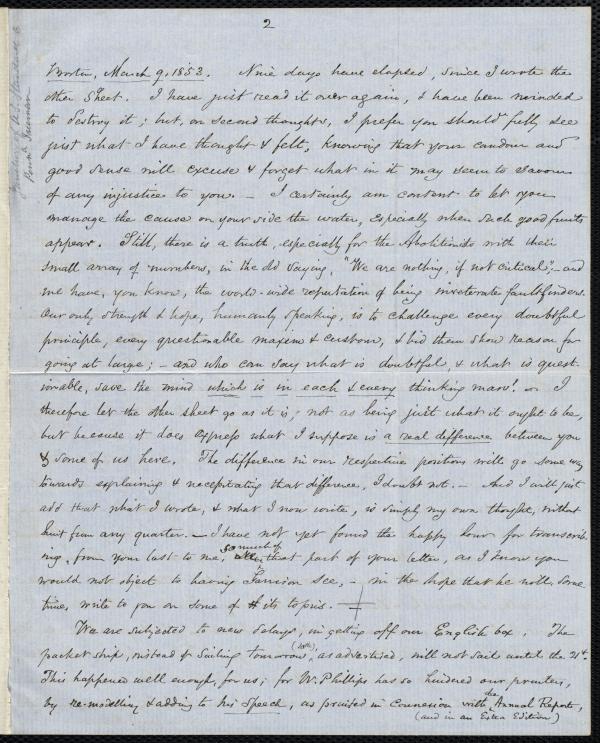 2
Boston, March 9, 1853. Nine days have elapsed, since I wrote the
other sheet. I have just read it over again, & have been minded
to destroy it; but, on second thoughts, I prefer you should fully see
just what I have thought & felt, knowing that your candour and
good sense will excuse & forget what in it may seem to savour
of any injustice to you. — I certainly am content to let you
manage the cause on your side the water, especially when such good fruits
appear. Still, there is a truth, especially for the Abolitionists with their
small array of numbers, in the old saying, "We are nothing, if not critical"; — and
we have, you know, the world-wide reputation of being inveterate faultfinders.
Our only strength & hope, humanly speaking, is to challenge every doubtful
principle, every questionable maxim & custom, & bid them show reason for
going at large; — and who can say what is doubtful, & what is quest-
ionable, save the mind which is in each & every thinking man! — I
therefore let the other sheet go as it is; not as being just what it ought to be,
but because it does express what I suppose is a real difference between you
& some of us here. The difference in our respective positions will go some way
towards explaining & necessitating that difference, I doubt not. — And I will just
add that what I wrote, & what I now write, is simply my own thought, without
hint from any quarter. — I have not yet found the happy hour for transcrib-
ing, from your last to me, so much of that part of your letter, as I know you
would not object to having Garrison see, — in the hope that he will, some
time, write to you on some of its topics. —
We are subjected to new delays, in getting off our English box. The
packet ship, instead of sailing tomorrow, (10th), as advertised, will not sail until the 21st.
This happened well enough, for us; for W. Phillips has so hindered our printers,
by re-modelling & adding to his Speech, as promised in connexion with the Annual Report,
(and in an Extra Edition)